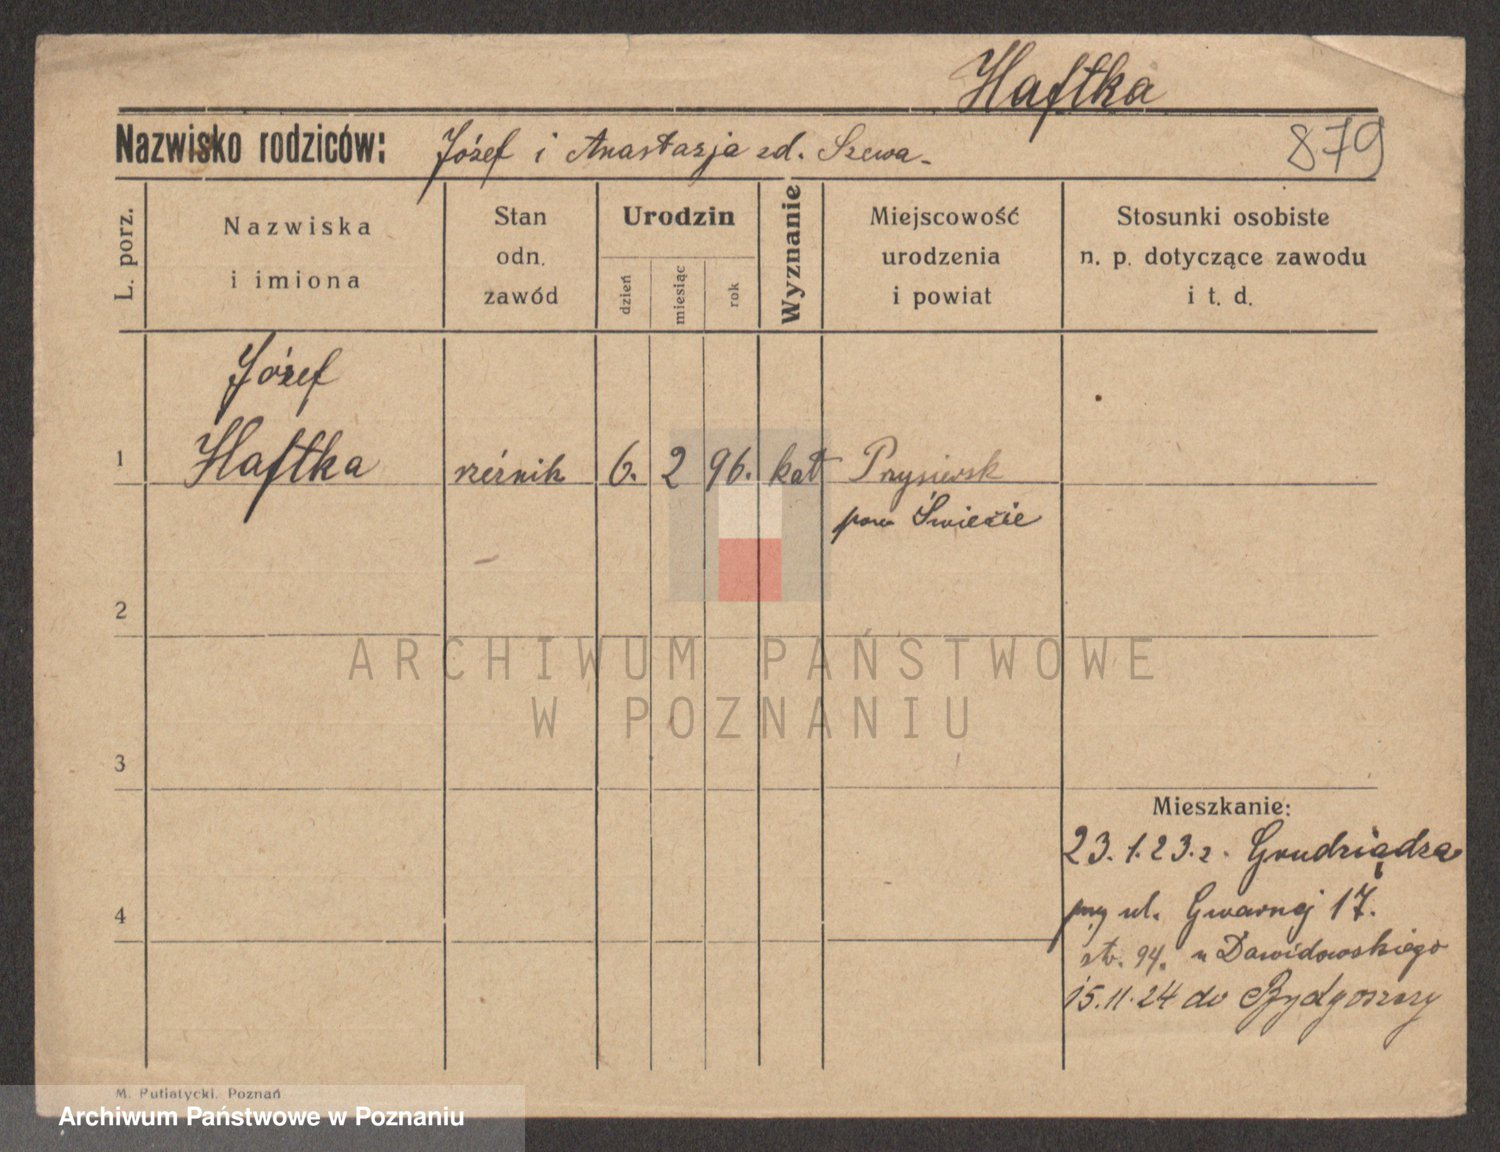 Haftka
Nazwisko rodziców: Józef i Anastazja zd. Szewa.
879
L. porz.
Nazwiska
i imiona
Stan
odn.
zawód
Urodzin
dzień
miesiąc
rok
Wyznanie
Miejscowość
urodzenia
i powiat
Stosunki osobiste
n. p. dotyczące zawodu
i t. d.
Józef
1 Haftka rzeźnik 6. 2 96. kat Przysiersk
pow Świecie
2
ARCHIWUM PAŃSTWOWE
W POZNANIU
3
Mieszkanie:
23.1.23. z. Grudziądza
4 przy ul. Gwarnej 17.
str. 94. u Dawidowskiego
15.11.24 do Bydgoszczy
M. Putiatycki. Poznań
Archiwum Państwowe w Poznaniu